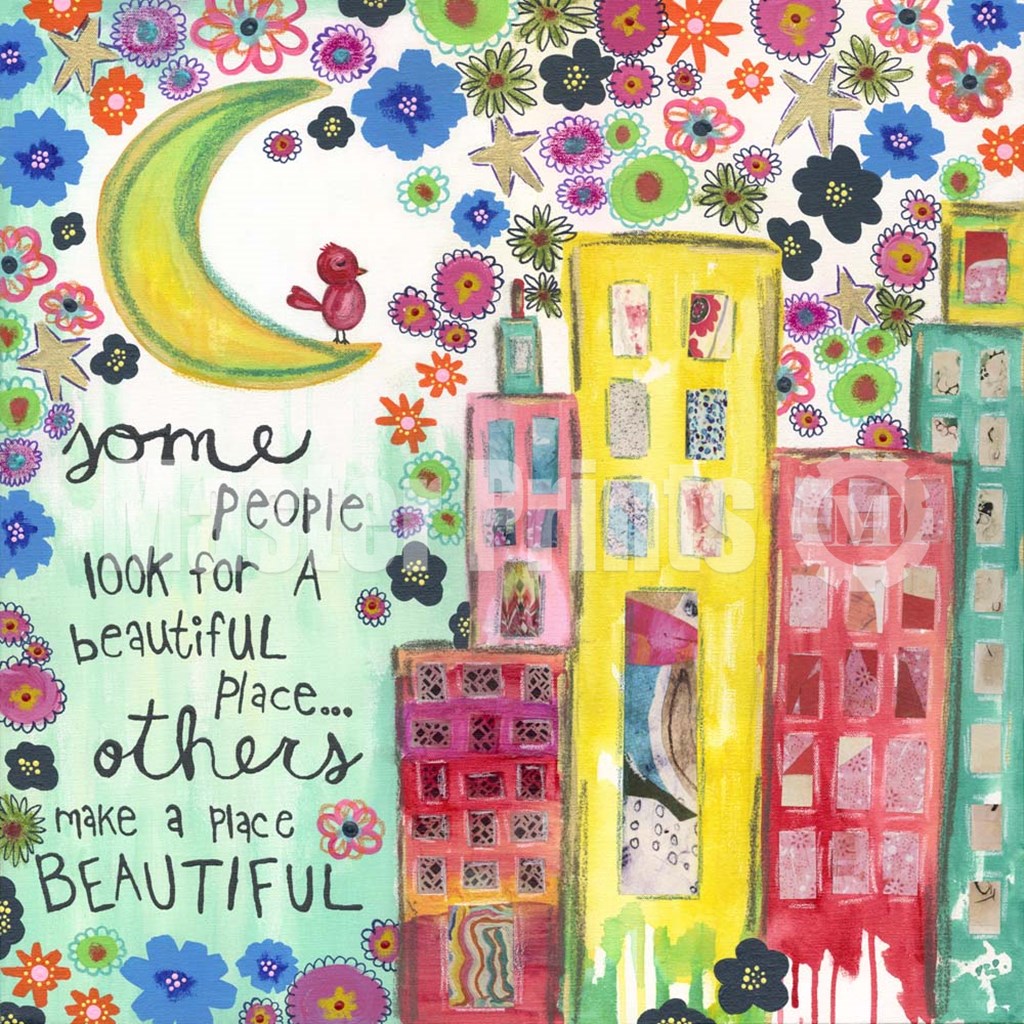 some
people
look for A
beautiful
place...
others
make a place
BEAUTIFUL
Master Prints
M